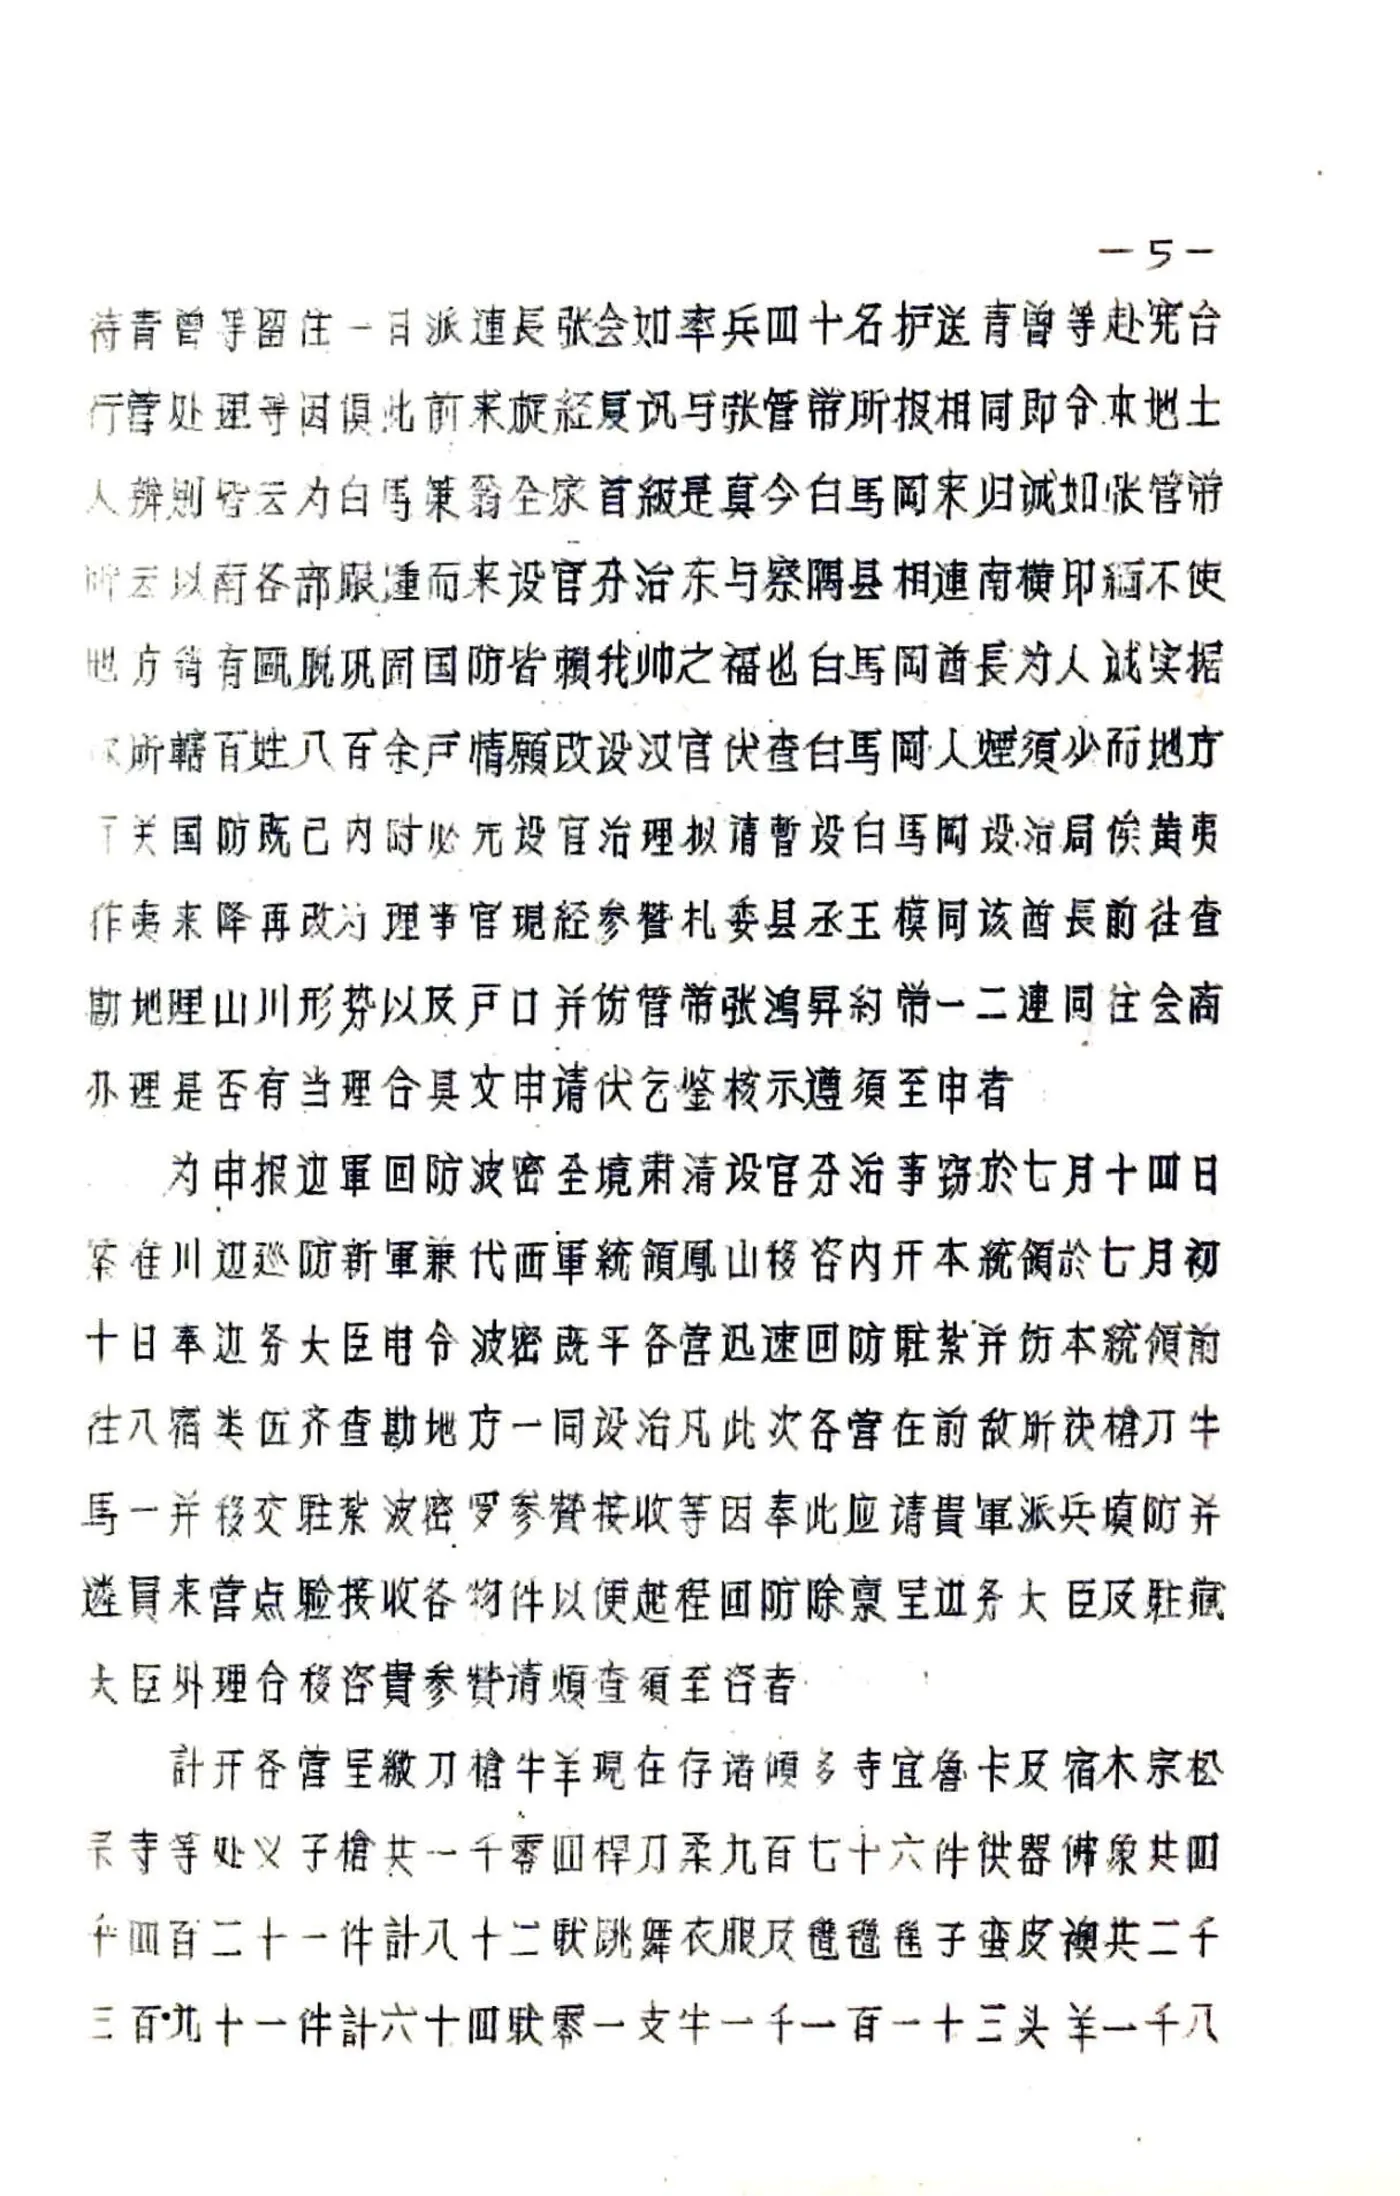 －5－
待青曾等留住一日派連長张会如率兵四十名护送青曾等赴宪台
行营处理等因俱此前来旋経复讯与张管带所报相同即令本地土
人辨则皆云为白馬策翁全家首級是真今白馬岡来归诚如张管带
所云以南各部跟踵而来设官分治东与察隅县相連南横印緬不使
地方稍有甌脱巩固国防皆賴我帅之福也白馬岡酋長为人诚实据
称所轄百姓八百余戸情願改设汉官伏查白馬岡人煙須少而地方
有关国防既己内附必先设官治理拟请暫设白馬岡设治局俟黄夷
作夷来降再改为理事官現経参贊札委县丞王模同该酋長前往查
勘地理山川形势以及戸口并饬管带张鴻昇約带一二連同往会商
办理是否有当理合具文申请伏乞鉴核示遵須至申者
为申报边軍回防波密全境肃清设官分治事窃於七月十四日
案准川边巡防新軍兼代西軍統領鳳山移咨内开本統領於七月初
十日奉边务大臣电令波密既平各营迅速回防駐紮并饬本統領前
往八宿类伍齐查勘地方一同设治凡此次各营在前敌所获槍刀牛
馬一并移交駐紮波密罗参贊接收等因奉此应请貴軍派兵填防并
遴員来营点验接收各物件以便起程回防除禀呈边务大臣及駐藏
大臣外理合移咨貴参贊请煩查須至咨者
計开各营呈繳刀槍牛羊現在存诸傾多寺宜魯卡及宿木宗松
宗寺等处义子槍共一千零四桿刀柔九百七十六件供器佛象共四
千四百二十一件計八十二馱跳舞衣服及氆氇毯子蛮皮襖共二千
三百九十一件計六十四馱零一支牛一千一百一十三头羊一千八